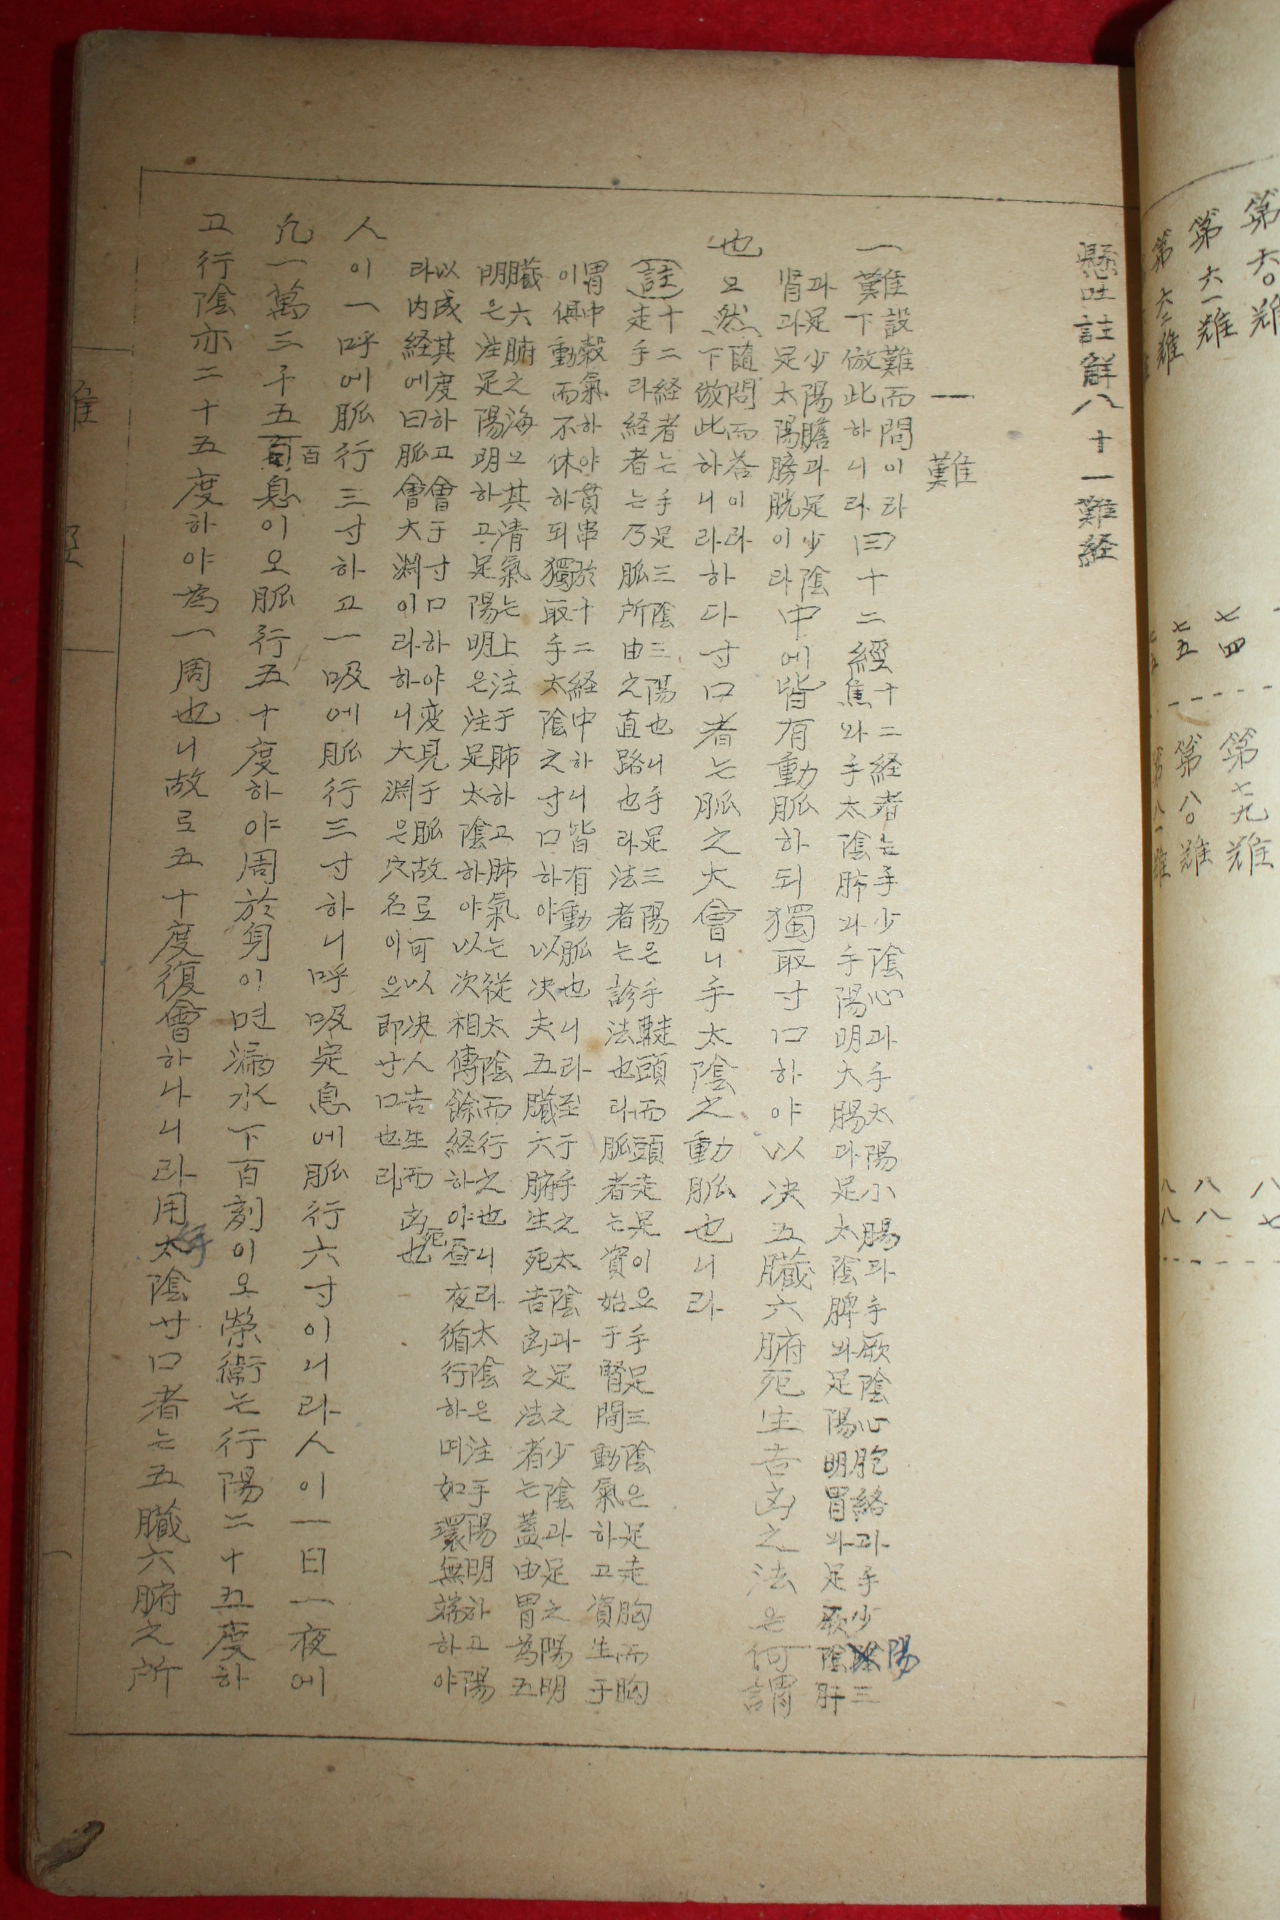 第六〇難
第六一難
第六二難
七四
七五
第七九難
第八〇難
第八一難
八七
八八
八八
懸吐註解八十一難経
一難
一難設難而問이라
下倣此하니라 曰十二經 十二経者는手少陰心과手太陽小腸과手厥陰心胞絡과手少陽三
焦와手太陰肺와手陽明大腸과足太陰脾와足陽明胃와足厥陰肝
과足少陽膽과足少陰
腎과足太陽膀胱이라 中에皆有動脈하되獨取寸口하야以决五臟六腑死生吉凶之法은何謂
也요 然 隨問而答이라
下倣此하니라 라하다寸口者는脈之大會니手太陰之動脈也니라
(註)十二経者는手足三陰三陽也니手足三陽은手走頭而頭走足이요手足三陰은足走胸而胸
走手라経者는乃脈所由之直路也라法者는診法也라脈者는資始于腎間動氣하고資生于
胃中穀氣하야貫串於十二経中하니皆有動脈也니라至于手之太陰과足之少陰과足之陽明
이俱動而不休하되獨取手太陰之寸口하야以决夫五臟六腑生死吉凶之法者는蓋由胃為五
臟六腑之海요其清氣는上注于肺하고肺氣는從太陰而行之也니라太陰은注手陽明하고陽
明은注足陽明하고足陽明은注足太陰하야以次相傳餘経하야昼夜循行하며如環無端하야
以成其度하고會于寸口하야变見于脈故로可以决人吉生而凶死也
라内経에曰脈會大渊이라하니大渊은穴名이으即寸口也라
人이一呼에脈行三寸하고一吸에脈行三寸하니呼吸定息에脈行六寸이니라人이一日一夜에
凡一萬三千五百息이오脈行五十度하야周於身이면漏水下百刻이오榮衛는行陽二十五度하
고行陰亦二十五度하야為一周也니故로五十度復會하나니라用手太陰寸口者는五臟六腑之所
難経
一